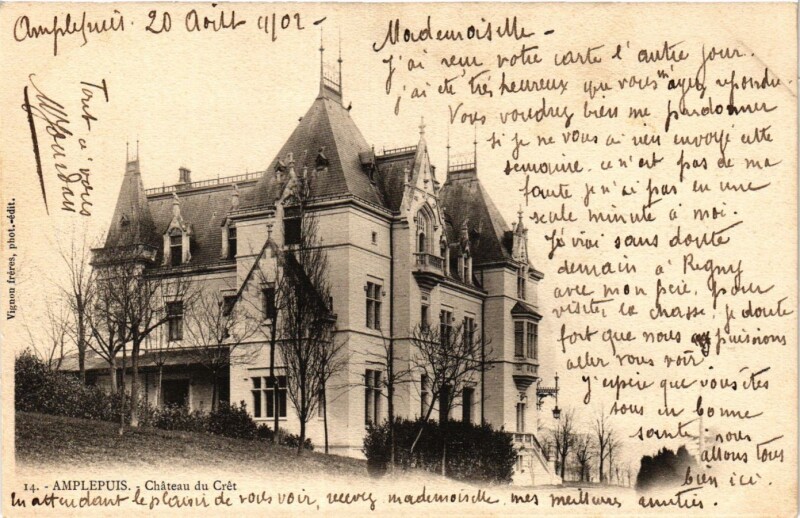 Amplepuis. 20 Août 1902 -
Mademoiselle -
J'ai reçu votre carte l'autre jour.
j'ai été très heureux que vous m'ayez répondu.
Vous voudrez bien me pardonner
si je ne vous ai rien envoyé cette
semaine. ce n'est pas de ma
faute je n'ai pas eu une
seule minute à moi.
J'irai sans doute
demain à Régny
avec mon père, pour
visiter la chasse, je doute
fort que nous puissions
aller vous voir.
J'espère que vous êtes
tous en bonne
santé. nous
allons tous
bien ici.
En attendant le plaisir de vous voir, recevez mademoiselle, mes meilleures amitiés.
Tout à vous
Vignon frères, phot.-édit.
14. - AMPLEPUIS. - Château du Crêt